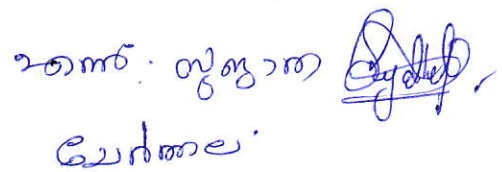 എന്ന്. സുജാത
ചേർത്തല.